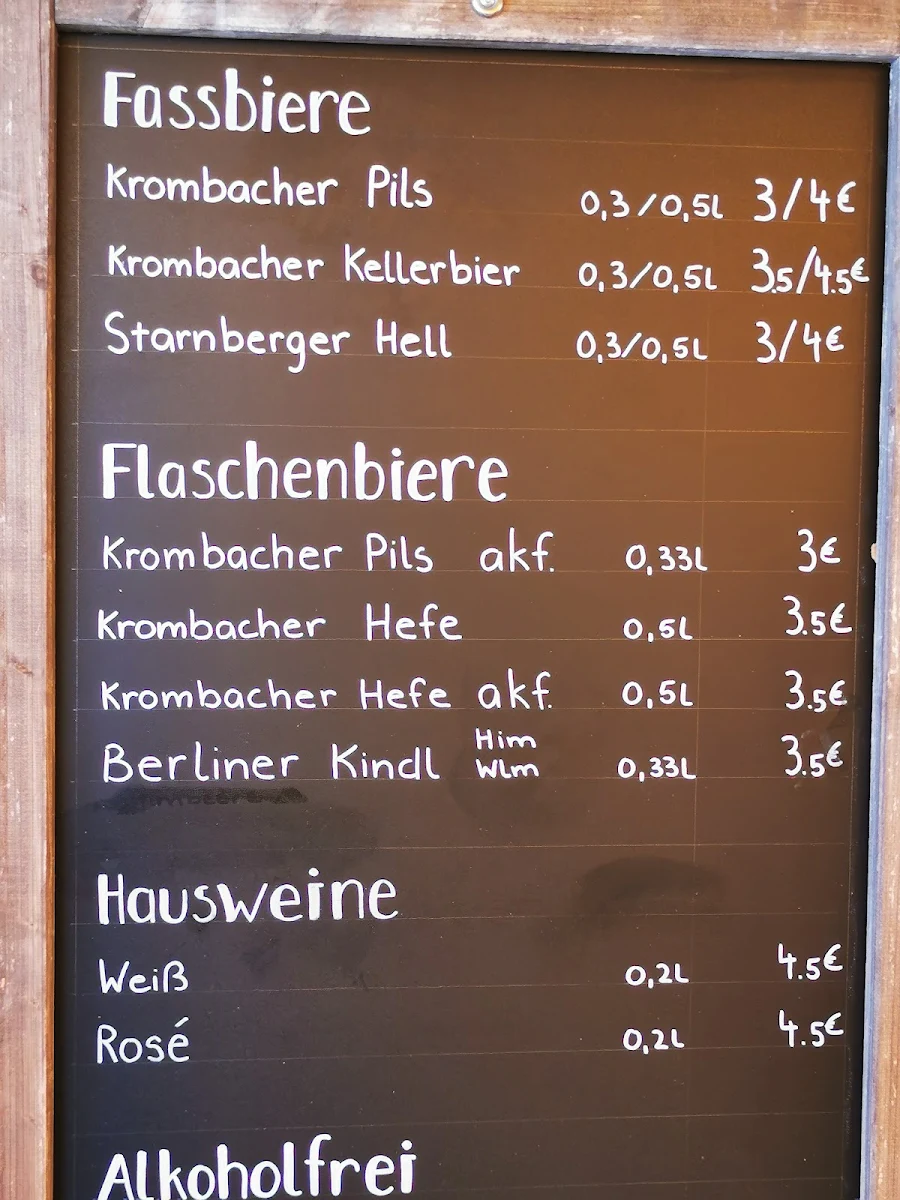 Fassbiere
Krombacher Pils 0,3/0,5L 3/4€
Krombacher Kellerbier 0,3/0,5L 3.5/4.5€
Starnberger Hell 0,3/0,5L 3/4€
Flaschenbiere
Krombacher Pils akf. 0,33L 3€
Krombacher Hefe 0,5L 3.5€
Krombacher Hefe akf. 0,5L 3.5€
Berliner Kindl Him Wlm 0,33L 3.5€
Hausweine
Weiß 0,2L 4.5€
Rosé 0,2L 4.5€
Alkoholfrei